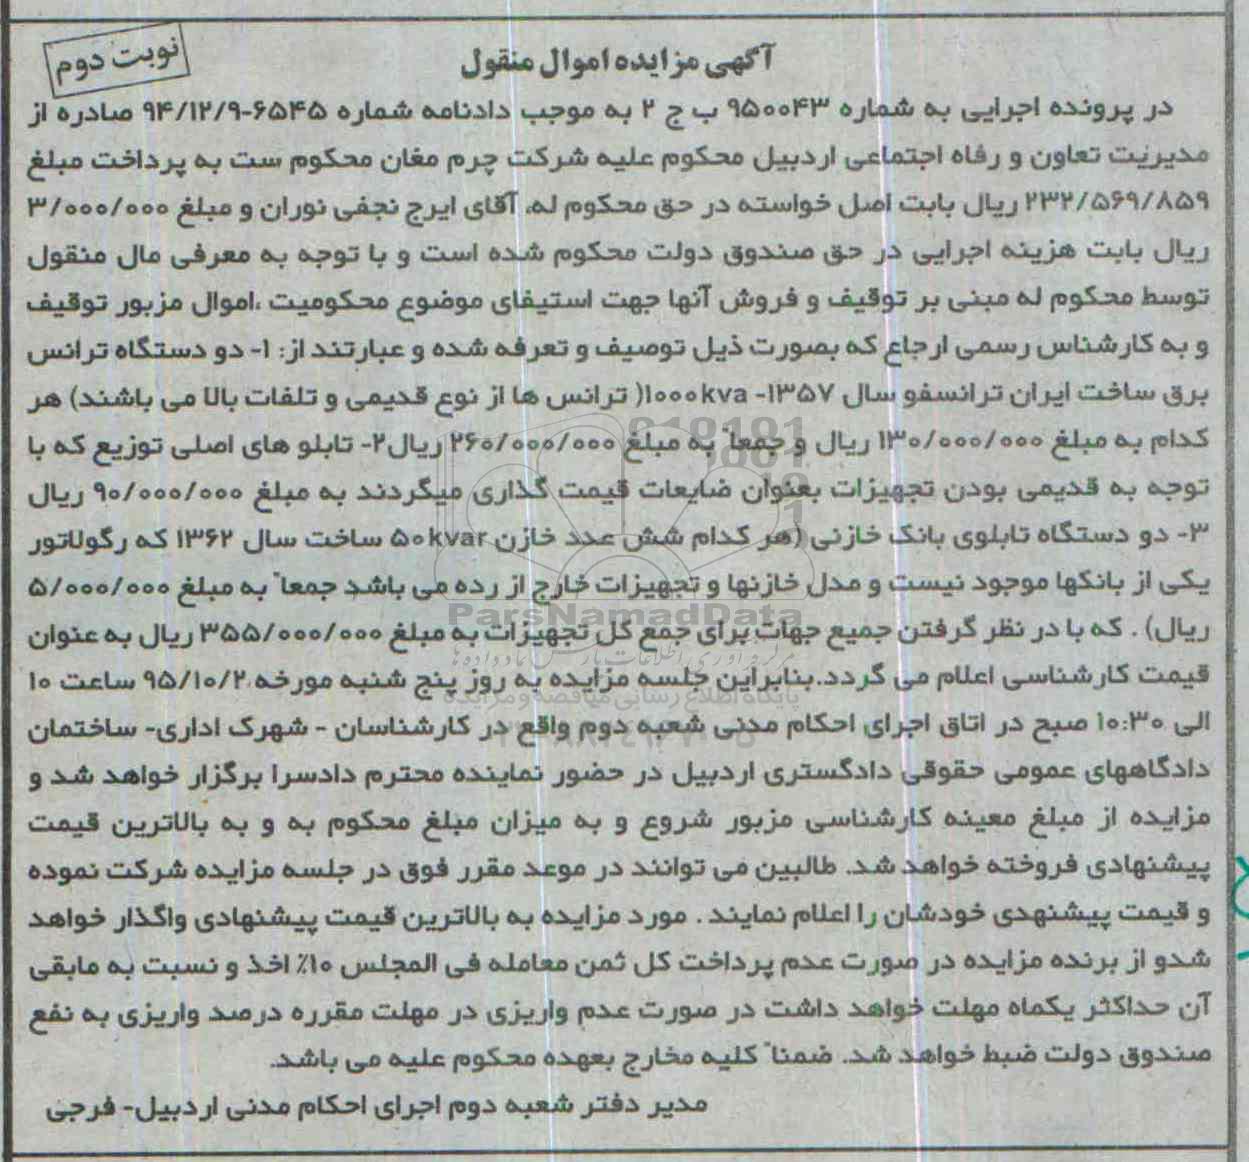 نوبت دوم
آگهی مزایده اموال منقول
در پرونده اجرایی به شماره ۹۵۰۰۴۳ ب ج ۲ به موجب دادنامه شماره ۶۵۴۵-۹۴/۱۲/۹ صادره از
مدیریت تعاون و رفاه اجتماعی اردبیل محکوم علیه شرکت چرم مغان محکوم ست به پرداخت مبلغ
۲۳۲/۵۶۹/۸۵۹ ریال بابت اصل خواسته در حق محکوم له، آقای ایرج نجفی نوران و مبلغ ۳/۰۰۰/۰۰۰
ریال بابت هزینه اجرایی در حق صندوق دولت محکوم شده است و با توجه به معرفی مال منقول
توسط محکوم له مبنی بر توقیف و فروش آنها جهت استیفای موضوع محکومیت ،اموال مزبور توقیف
و به کارشناس رسمی ارجاع که بصورت ذیل توصیف و تعرفه شده و عبارتند از: ۱- دو دستگاه ترانس
برق ساخت ایران ترانسفو سال ۱۳۵۷- ۱۰۰۰kva( ترانس ها از نوع قدیمی و تلفات بالا می باشند) هر
کدام به مبلغ ۱۳۰/۰۰۰/۰۰۰ ریال و جمعاً به مبلغ ۲۶۰/۰۰۰/۰۰۰ ریال۲- تابلو های اصلی توزیع که با
توجه به قدیمی بودن تجهیزات بعنوان ضایعات قیمت گذاری میگردند به مبلغ ۹۰/۰۰۰/۰۰۰ ریال
۳- دو دستگاه تابلوی بانک خازنی (هر کدام شش عدد خازن ۵۰kvar ساخت سال ۱۳۶۲ که رگولاتور
یکی از بانکها موجود نیست و مدل خازنها و تجهیزات خارج از رده می باشد جمعاً به مبلغ ۵/۰۰۰/۰۰۰
ریال) . که با در نظر گرفتن جمیع جهات برای جمع کل تجهیزات به مبلغ ۳۵۵/۰۰۰/۰۰۰ ریال به عنوان
قیمت کارشناسی اعلام می گردد.بنابراین جلسه مزایده به روز پنج شنبه مورخه ۹۵/۱۰/۲ ساعت ۱۰
الی ۱۰:۳۰ صبح در اتاق اجرای احکام مدنی شعبه دوم واقع در کارشناسان - شهرک اداری- ساختمان
دادگاههای عمومی حقوقی دادگستری اردبیل در حضور نماینده محترم دادسرا برگزار خواهد شد و
مزایده از مبلغ معینه کارشناسی مزبور شروع و به میزان مبلغ محکوم به و به بالاترین قیمت
پیشنهادی فروخته خواهد شد. طالبین می توانند در موعد مقرر فوق در جلسه مزایده شرکت نموده
و قیمت پیشنهدی خودشان را اعلام نمایند . مورد مزایده به بالاترین قیمت پیشنهادی واگذار خواهد
شدو از برنده مزایده در صورت عدم پرداخت کل ثمن معامله فی المجلس ۱۰٪ اخذ و نسبت به مابقی
آن حداکثر یکماه مهلت خواهد داشت در صورت عدم واریزی در مهلت مقرره درصد واریزی به نفع
صندوق دولت ضبط خواهد شد. ضمناً کلیه مخارج بعهده محکوم علیه می باشد.
مدیر دفتر شعبه دوم اجرای احکام مدنی اردبیل- فرجی
ParsNamadData
پایگاه اطلاع رسانی مناقصه و مزایده